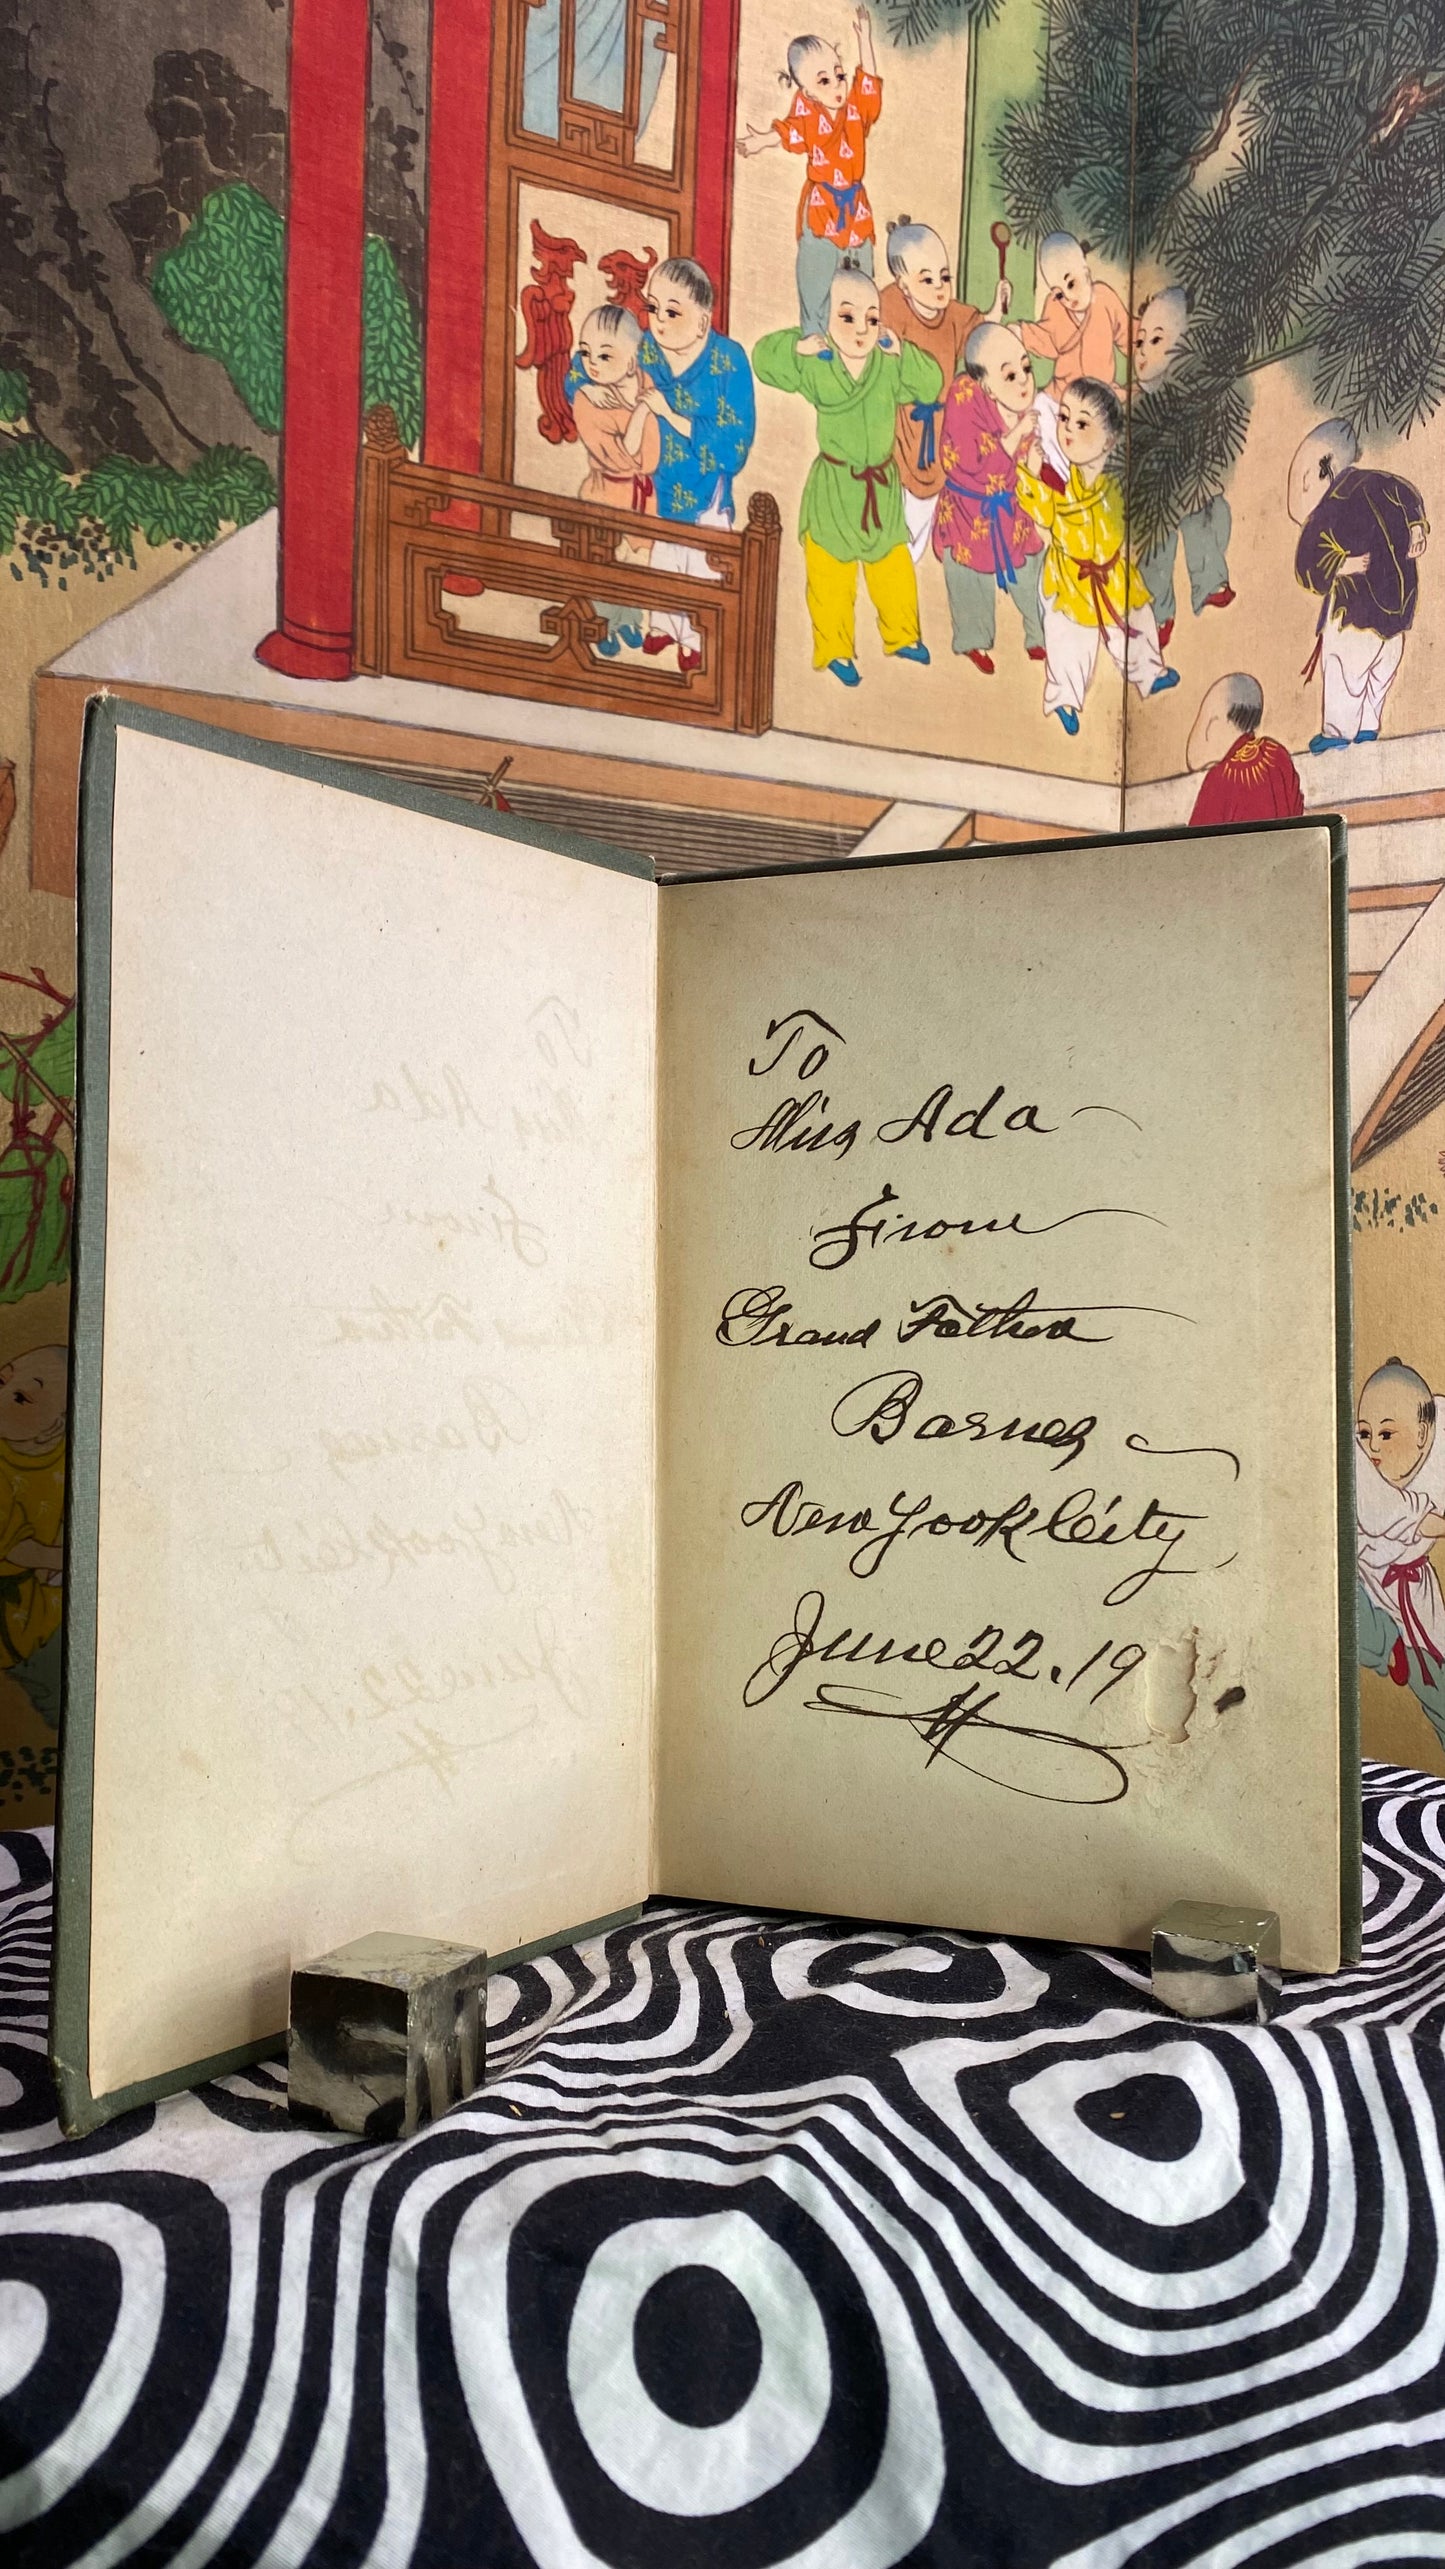 To
Miss Ada
From
Grand Father
Barnes
New York City,
June 22. 19